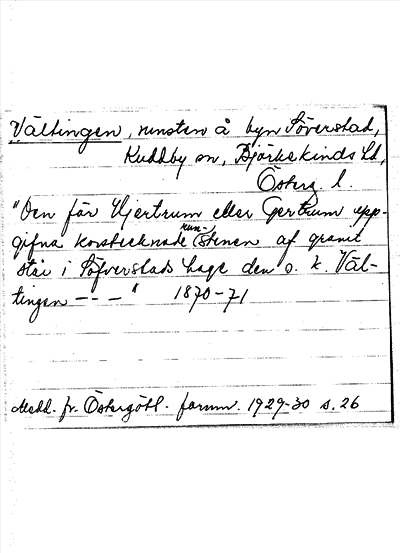 Vältingen, runsten å byn Söverstad,
Kuddby sn, Björkekinds hd,
Österg. l.
"Den för Hjertrum eller Gertrum upp-
gifna korstecknade run-stenen af granit
står i Söfverstads hage den s. k. Väl-
tingen - - - " 1870-71
Medd. fr. Östergötl. fornm. 1929-30 s. 26